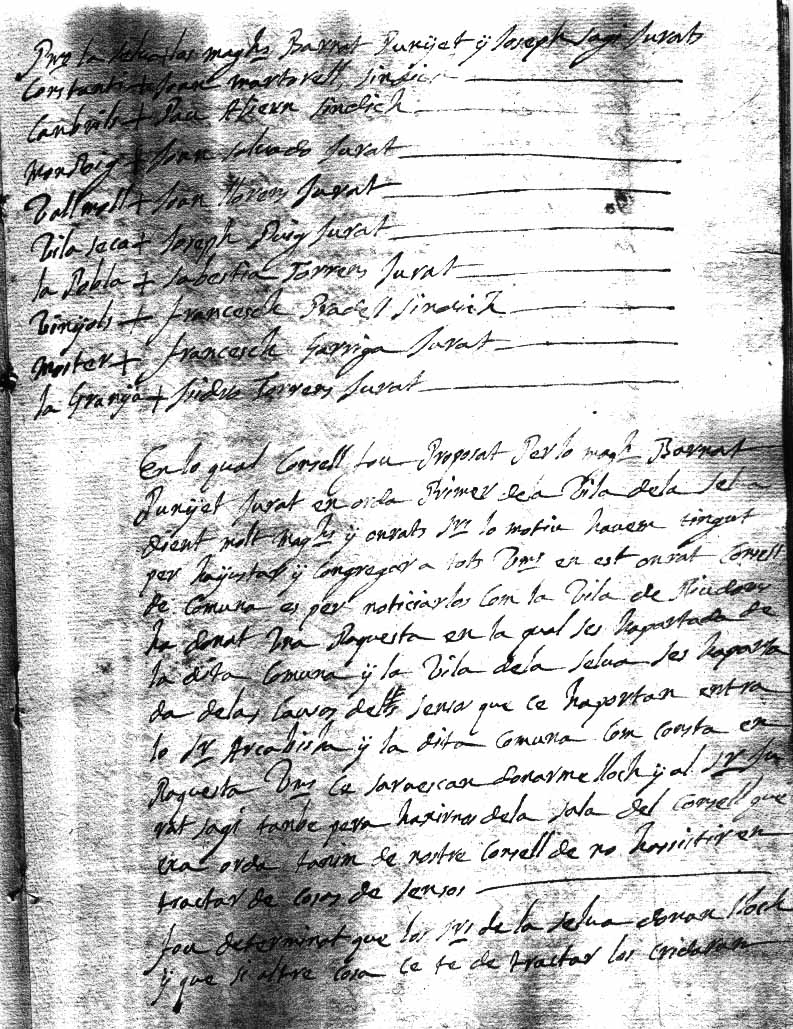 Per la Selva + los maghs Barnat Punyet ÿ Joseph Sagi Jurats
Constanti + Joan Martorell, Sindich
Canbrils + Pau Sindich
+ Joan Salvado Jurat
Vallmoll + Joan Llorens Jurat
Vila seca + Joseph Puig Jurat
la Pobla + Sabestia Torrens Jurat
Vinyols + Francesch Pradell Sindich
Moster + Francesch Garriga Jurat
la Granja + Isidro Torrens Jurat
En lo qual Consell fou Proposat Per lo magh Barnat
Punyet Jurat en orda Primer dela Vila dela Selva
dient molt maghs ÿ onrats Srs lo motiu havem tingut
per hajustar ÿ Congregar a tots Vms en est onrat Consell
de Comuna es per noticiarlos Com la Vila de Riudoms
ha donat Una Raquesta en la qual ses hapartada de
la dita Comuna ÿ la Vila dela Selva ses haparta
da delas Causas dels sensos que ce haportan entra
lo Sr Arcabisba ÿ la dita Comuna Com consta en
Raquesta Vms Ce donarme lloch ÿ al Sr Ju
rat Sagi tambe pera haxirnos dela sala del Consell que
exa orda tanim de nostre Consell de no hassistir en
tractar de Cosas de Sensos
fou determinat que los Srs de la Selva donan lloch
ÿ que si altre Cosa Ce te de tractar los cridaran